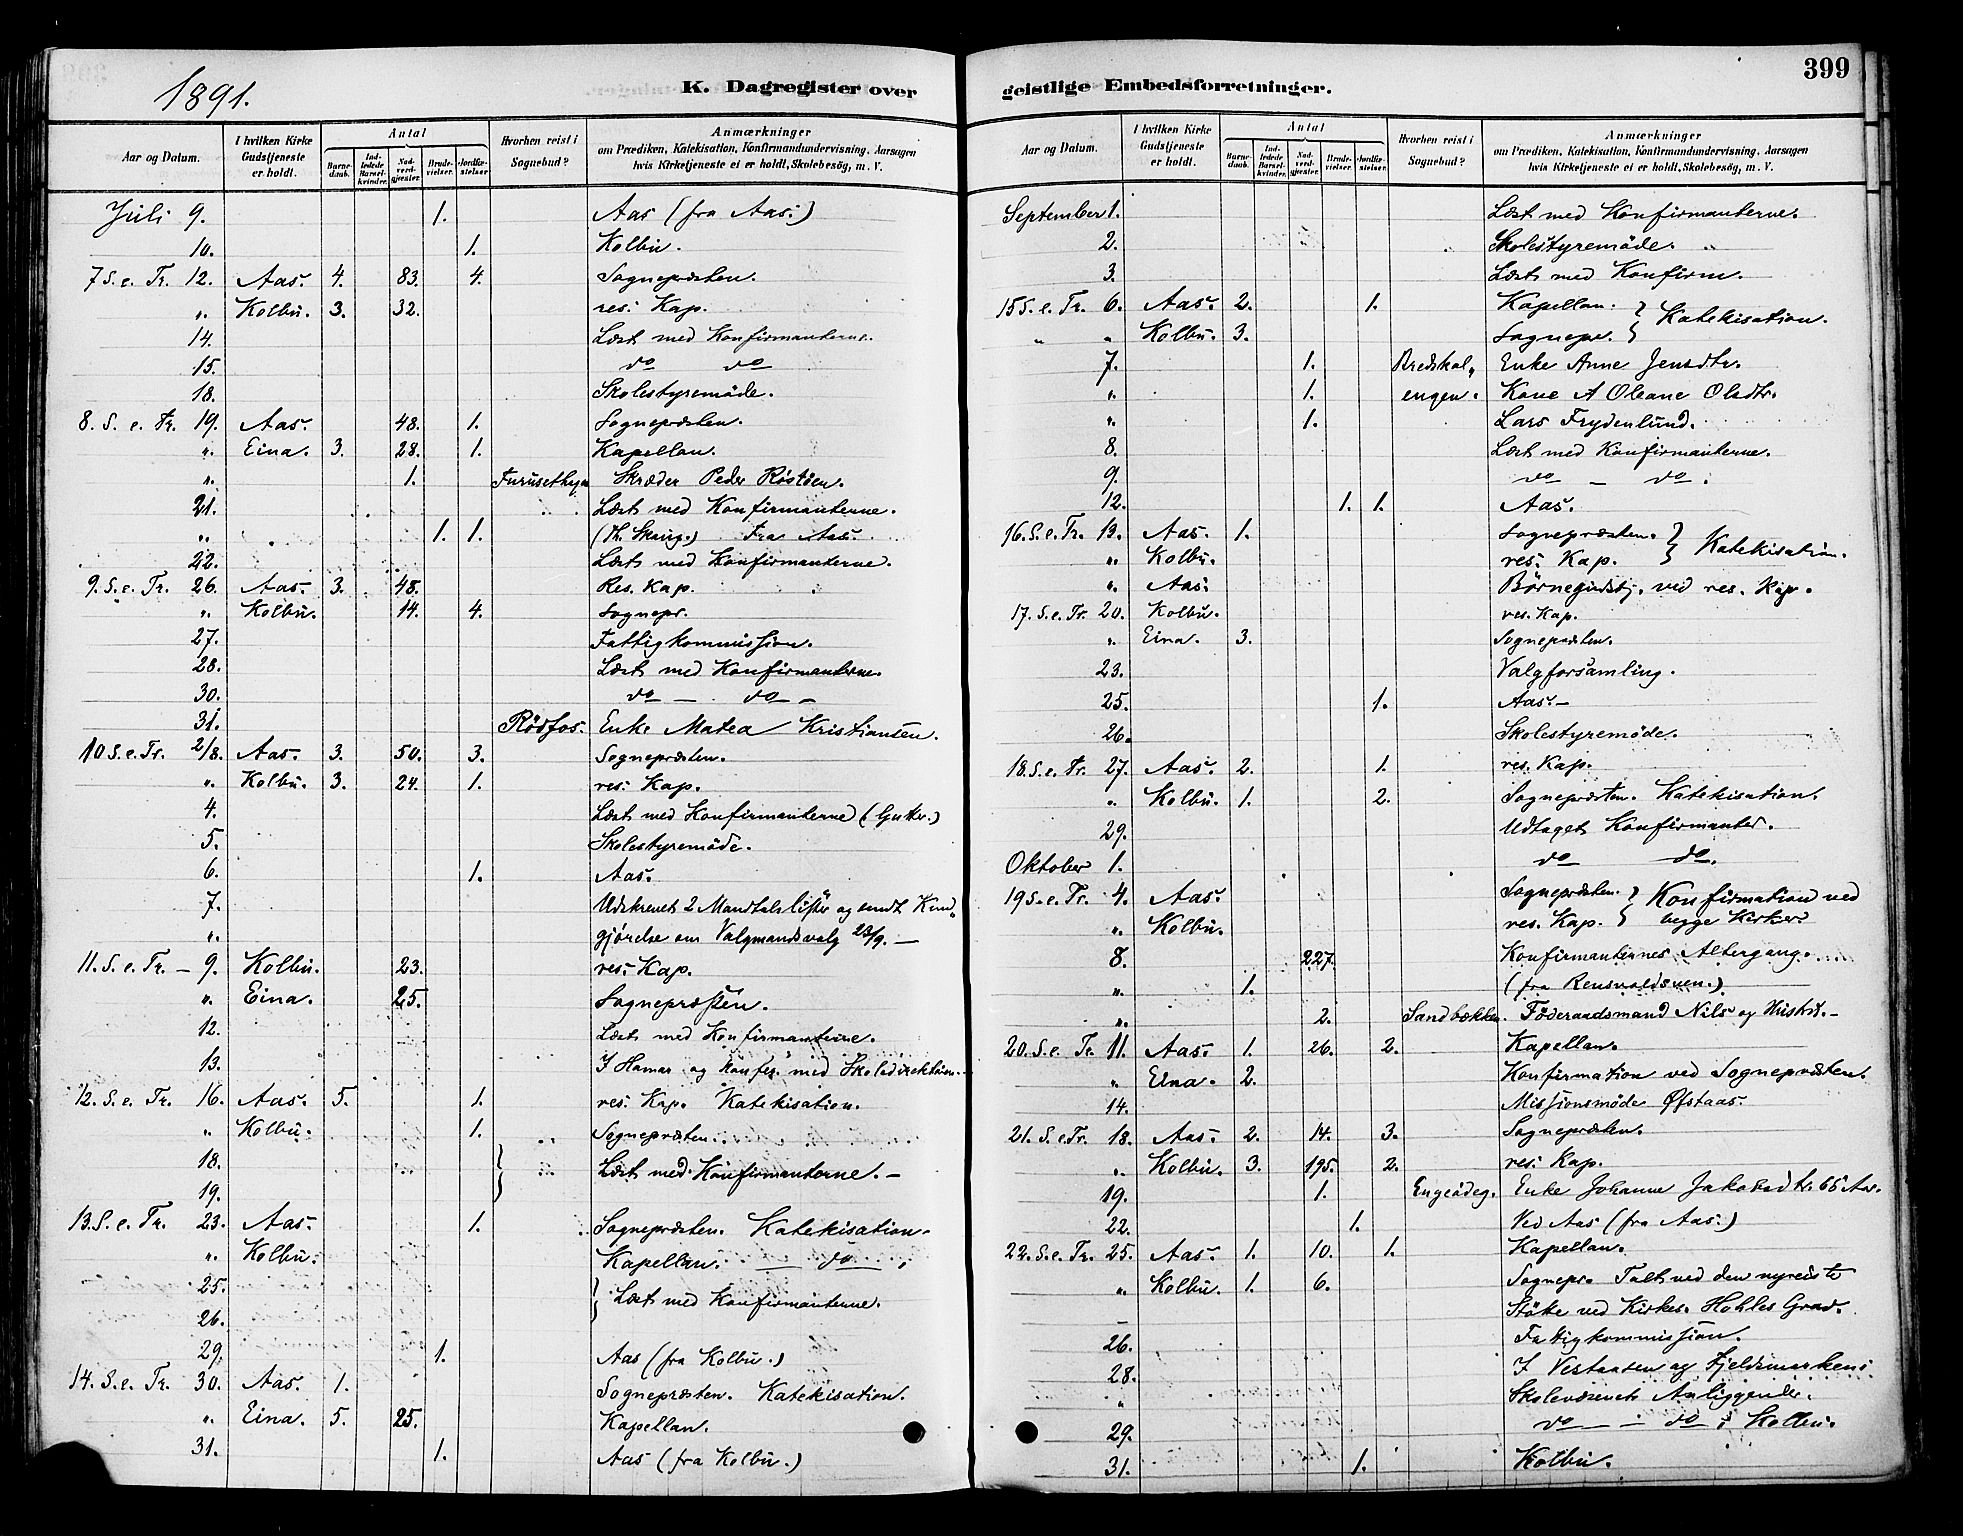 1891.
K. Dagregister over
Aar og Datum. I hvilken Kirke Gudstjeneste er holdt. Antal Barnedaab. Indledede Barselkvinder. Nadverdgjester. Brudevielser. Jordfæstelser. Hvorhen reist i Sognebud? Anmærkninger om Prædiken, Katekisation, Konfirmandundervisning, Aarsagen hvis Kirketjeneste ei er holdt, Skolebesøg, m. V.
Juli 9. 1. Aas (fra Aas.)
10. 1. Kolbu.
7 S. e. Tr. 12. Aas. 4. 83. 4. Sognepræsten.
" Kolbu. 3. 32. res. Kap.
14. Læst med Konfirmanterne.
15. do do
18. Skolestyremöde.
8. S. e. Tr. 19. Aas. 48. 1. Sognepræsten.
" Eina. 3. 28. 1. Kapellan.
" 1. Skræder Peder
21. Læst med Konfirmanterne.
" 1. 1. Fra Aas.
22. Læst med Konfirmanterne.
9. S. e. Tr. 26. Aas. 3. 48. Res. Kap.
" Kolbu. 14. 4. Sognepr.
27. Fattigkommission.
28. Læst med Konfirmanterne.
30. do — do —
31. Rödfos. Enke Matea Kristiansen.
10 S. e. Tr. 2/8. Aas. 3. 50. 3. Sognepræsten.
" Kolbu. 3. 24. 1. res. Kap.
4. Læst med Konfirmanterne (Gutter.)
5. Skolestyremöde.
6. 1. Aas.
7. Udskrevet 2 Mandtalslister og sendt Kund„
" gjörelse om Valgmandsvalg 23/9. —
11. S. e. Tr. — 9. Kolbu. 23. res. Kap.
" Eina. 25. Sognepræsten.
12. Læst med Konfirmanterne.
13. I Hamar og Konfer. med Skoledirektören.
12. S. e. Tr. 16. Aas. 5. 1. res. Kap. Katekisation.
" Kolbu. 1. Sognepræsten.
18. } Læst med Konfirmanterne. —
19.
13. S. e. Tr. 23. Aas. 1. Sognepræsten. Katekisation.
" Kolbu. Kapellan. — do —
25. } Læst med Konfirmanterne.
26.
29. 1. Aas (fra Kolbu.)
14. S. e. Tr. 30. Aas. 1. Sognepræsten. Katekisation.
" Eina. 5. 25. Kapellan.
31. 1. Aas (fra Kolbu.)
399
geistlige Embedsforretninger.
Aar og Datum. I hvilken Kirke Gudstjeneste er holdt. Antal Barnedaab. Indledede Barselkvinder. Nadverdgjester. Brudevielser. Jordfæstelser. Hvorhen reist i Sognebud? Anmærkninger om Prædiken, Katekisation, Konfirmandundervisning, Aarsagen hvis Kirketjeneste ei er holdt, Skolebesøg, m. V.
September 1. Læst med Konfirmanterne.
2. Skolestyremöde.
3. Læst med Konfirm.
15 S. e. Tr. 6. Aas. 2. 1. Kapellan. } Katekisation.
" " Kolbu. 3. Sognepr. }
7. 1. Bredskal„ Enke Anne Jensdtr.
" 1. engen. Kone A Oleane Olsdtr.
" 1. Lars Frydenlund.
8. Læst med Konfirmanterne.
9. do — do.
12. 1. 1. Aas.
16. S. e. Tr. 13. Aas. 1. Sognepræsten. } Katekisation.
" Kolbu. res. Kap. }
" Aas. Börnegudstj. ved res. Kap.
17. S. e. Tr. 20. Kolbu. res. Kap.
" Eina. 3. Sognepræsten.
23. Valgforsamling.
25. 1. Aas. —
26. Skolestyremöde.
18. S. e. Tr. 27. Aas. 2. 1. res. Kap.
" Kolbu. 1. 2. Sognepræsten. Katekisation.
29. Udtaget Konfirmanter.
Oktober 1. do do.
19 S. e. Tr. 4. Aas. Sognepræsten. } Konfirmation ved
" Kolbu. res. Kap. } begge Kirker.
8. 227. Konfirmanternes Altergang.
" 1. (fra
" 2. Sandbækken. Föderaadsmand Nils og Hustr. —
20. S. e. Tr. 11. Aas. 1. 26. 2. Kapellan.
" Eina. 2. Konfirmation ved Sognepræsten.
14. Missionsmöde Øfstaas.
21. S. e. Tr. 18. Aas. 2. 14. 3. Sognepræsten.
" Kolbu. 3. 195. 2. res. Kap.
19. 1. Engeödeg. Enke Johanne Jakobsdtr. 65 Aar.
22. 1. Ved Aas (fra Aas.)
22. S. e. Tr. 25. Aas. 1. 10. 1. Kapellan.
" Kolbu. 1. 6. Sognepr. Talt ved den nyreiste
Stötte ved Kirkes. Hohles Grav.
26. Fattigkommission.
28. I og Fjeldmarkens
" Skolevæsenet Anliggender.
29. do — do i Kolbu.
31. 1. Kolbu.